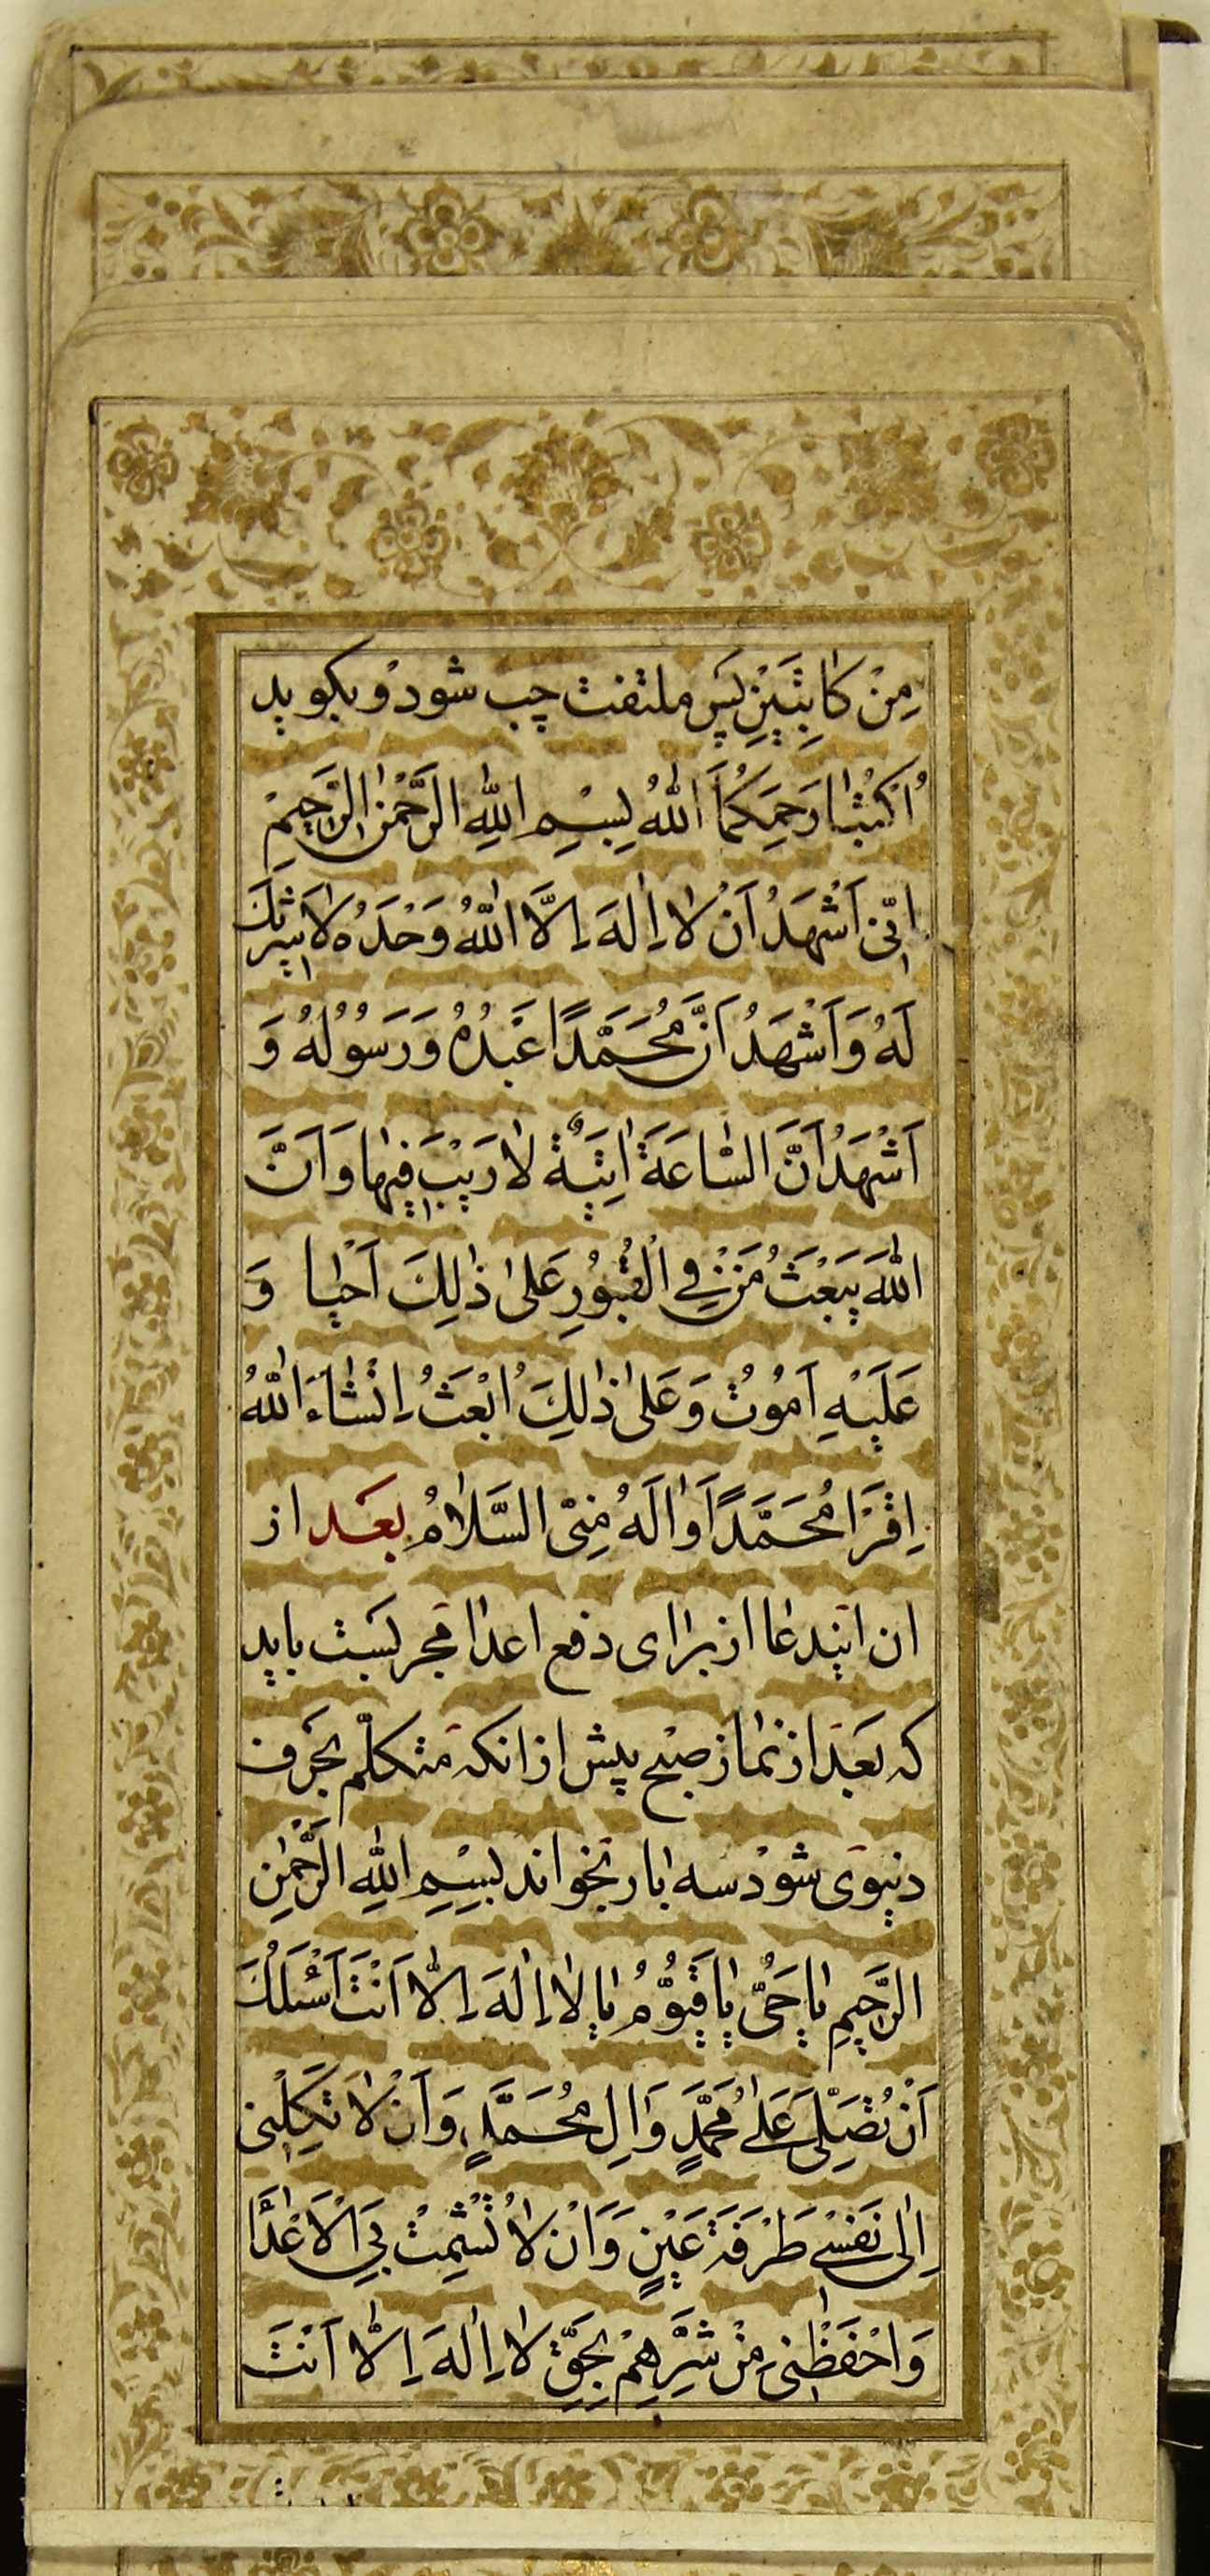 مِنْ كٰاتِبَيْنِ پَس ملتفت چپ شود و بكويد
اُكْتُبٰا رَحِمَكُمَا اللّٰهُ بِسْمِ اللّٰهِ الرَّحْمٰنِ الرَّحِيمِ
اِنّى اَشْهَدُ اَنْ لٰا اِلٰهَ اِلَّا اللّٰهُ وَحْدَهُ لٰا شَرِيكَ
لَهُ وَ اَشْهَدُ اَنَّ مُحَمَّدًا عَبْدُهُ وَ رَسُولُهُ وَ
اَشْهَدُ اَنَّ السّٰاعَةَ اٰتِيَةٌ لٰا رَيْبَ فِيهٰا وَ اَنَّ
اللّٰهَ يَبْعَثُ مَنْ فِي الْقُبُورِ عَلىٰ ذٰلِكَ اَحْيٰا وَ
عَلَيْهِ اَمُوتُ وَ عَلىٰ ذٰلِكَ اُبْعَثُ اِنْشٰاءَ اللّٰهُ
اِقْرَا مُحَمَّدًا وَ اٰلَهُ مِنّى السَّلٰامُ بعَد از
ان ايندعا از براى دفع اعدا مجربست بايد
كه بعَد از نماز صبح پيش از انكه متكلّم بحَرف
دنيوى شود سه بار بخواند بِسْمِ اللّٰهِ الرَّحْمٰنِ
الرَّحِيمِ يٰا حَىُّ يٰا قَيُّومُ يٰا لٰا اِلٰهَ اِلّٰا اَنْتَ اَسْئَلُكَ
اَنْ تُصَلِّىَ عَلىٰ مُحَمَّدٍ وَ اٰلِ مُحَمَّدٍ وَ اَنْ لٰا تَكِلْنى
اِلٰى نَفْسى طَرْفَةَ عَيْنٍ وَ اَنْ لٰا تُشْمِتْ بِيَ الْاَعْدٰاَ
وَ احْفَظْنى مِنْ شَرِّهِمْ بِحَقِّ لٰا اِلٰهَ اِلّٰا اَنْتَ